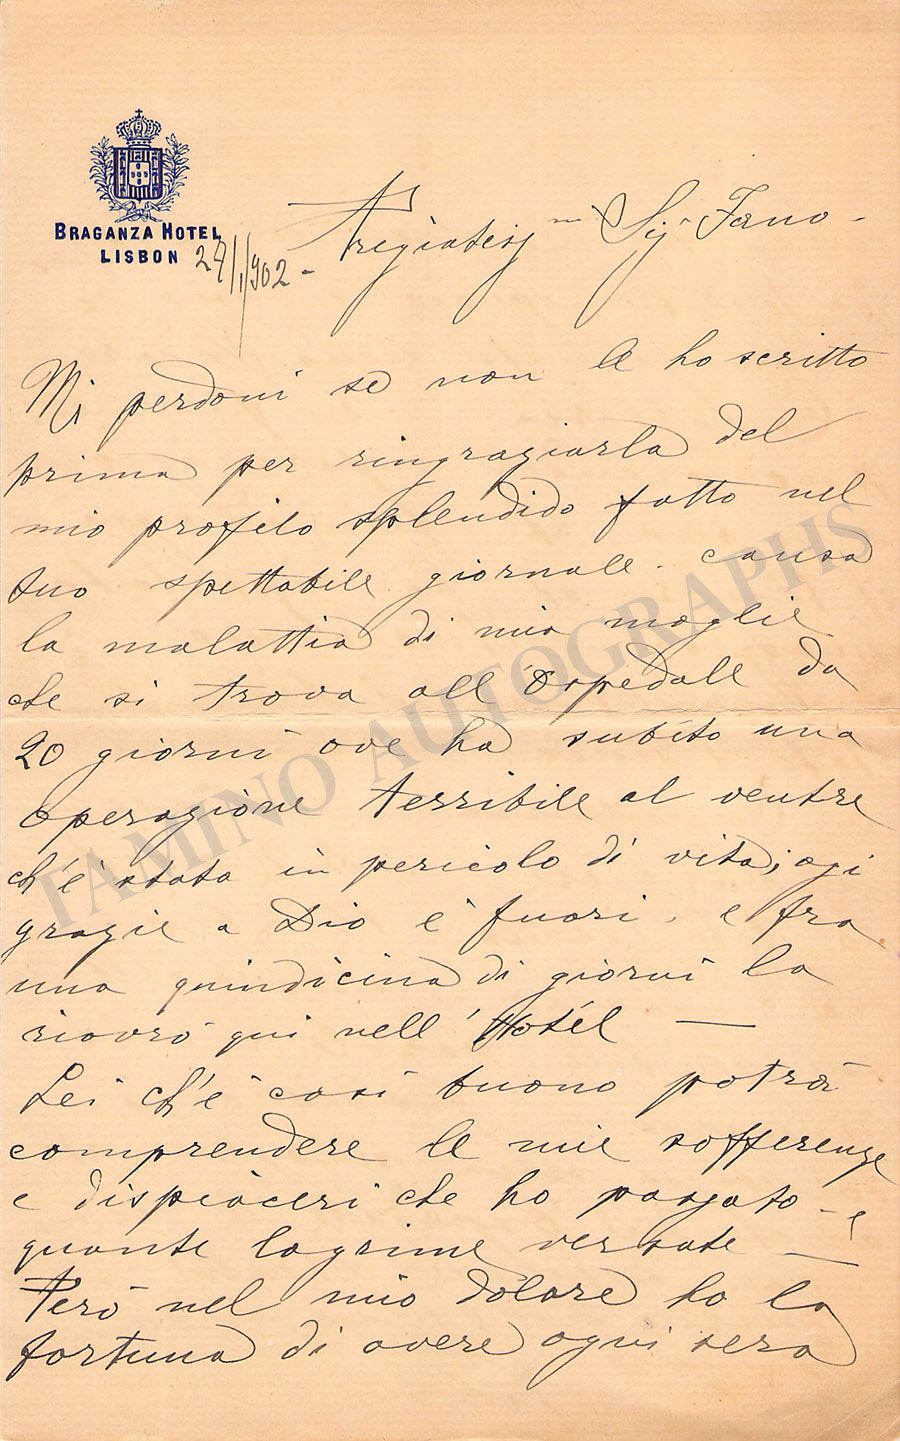 BRAGANZA HOTEL
LISBON
Pregiatis mo Sig r Fano -
Mi perdoni se non le ho scritto
prima per ringraziarla del
mio profilo splendido fatto nel
suo spettabile giornale. causa
la malattia di mia moglie
che si trova all'Ospedale da
20 giorni ove ha subìto una
operazione terribile al ventre
ch'è stata in pericolo di vita; ogi
grazie a Dio è fuori. e fra
una quindicina di giorni la
riavrò qui nell'Hotél —
Lei ch'è così buono potrà
comprendere le mie sofferenze
e dispiaceri che ho passato - e
quante lagrime versate —
Però nel mio dolore ho la
fortuna di avere ogni sera
TAMINO AUTOGRAPHS